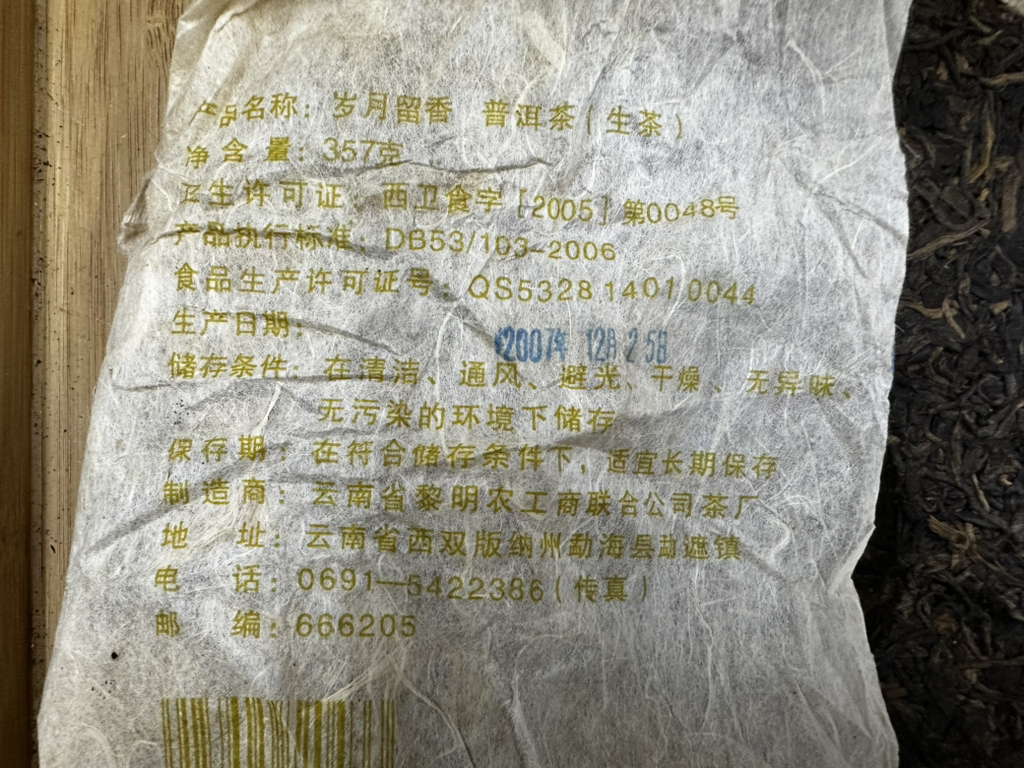 产品名称：岁月留香 普洱茶（生茶）
净含量：357克
卫生许可证：西卫食字［2005］第0048号
产品执行标准：DB53/103-2006
食品生产许可证号：QS5328 1401 0044
生产日期：2007年 12月 25日
储存条件：在清洁、通风、避光、干燥、无异味、
无污染的环境下储存
保存期：在符合储存条件下，适宜长期保存
制造商：云南省黎明农工商联合公司茶厂
地 址：云南省西双版纳州勐海县勐遮镇
电 话：0691—5422386（传真）
邮 编：666205